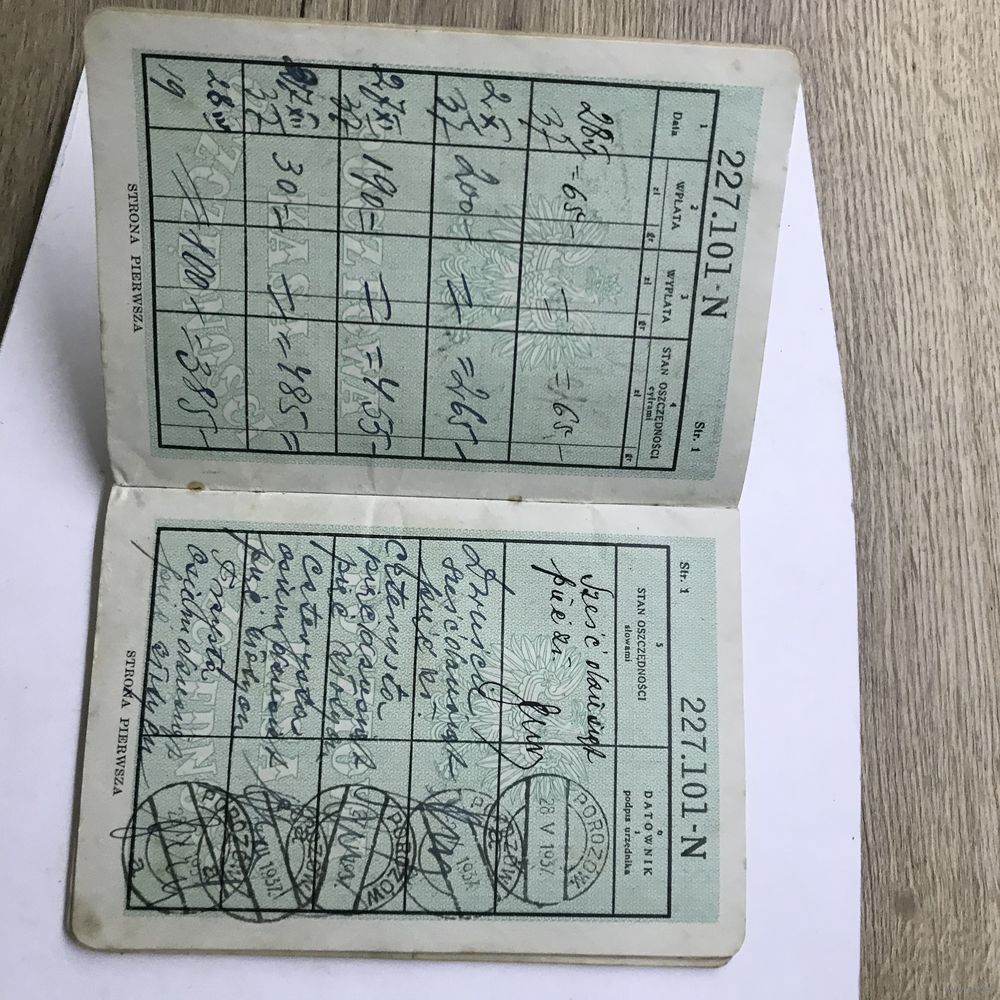 227.101-N
Str. 1
1 2 3 4
Data WPŁATA WYPŁATA STAN OSZCZĘDNOŚCI
cyframi
zł gr zł gr zł gr
28 V =65- = =65-
37
2 XI 200= = =265-
37
27 XI 190= = =455-
37
30= = =485=
37
28 100 =385-
19
STRONA PIERWSZA
227.101-N
Str. 1
5 6
STAN OSZCZĘDNOŚCI DATOWNIK
słowami i
podpis urzędnika
Sześć dziesiąt
pięć zł. POROZÓW
28 V 1937
Dwieście
sześćdziesiąt
pięć zł. 1937
Czterysta POROZÓW
pięćdziesiąt
pięć złotych
Czterysta POROZÓW
osiemdziesiąt
pięć złotych 1937
Trzysta
osiemdziesiąt
pięć złotych
STRONA PIERWSZA